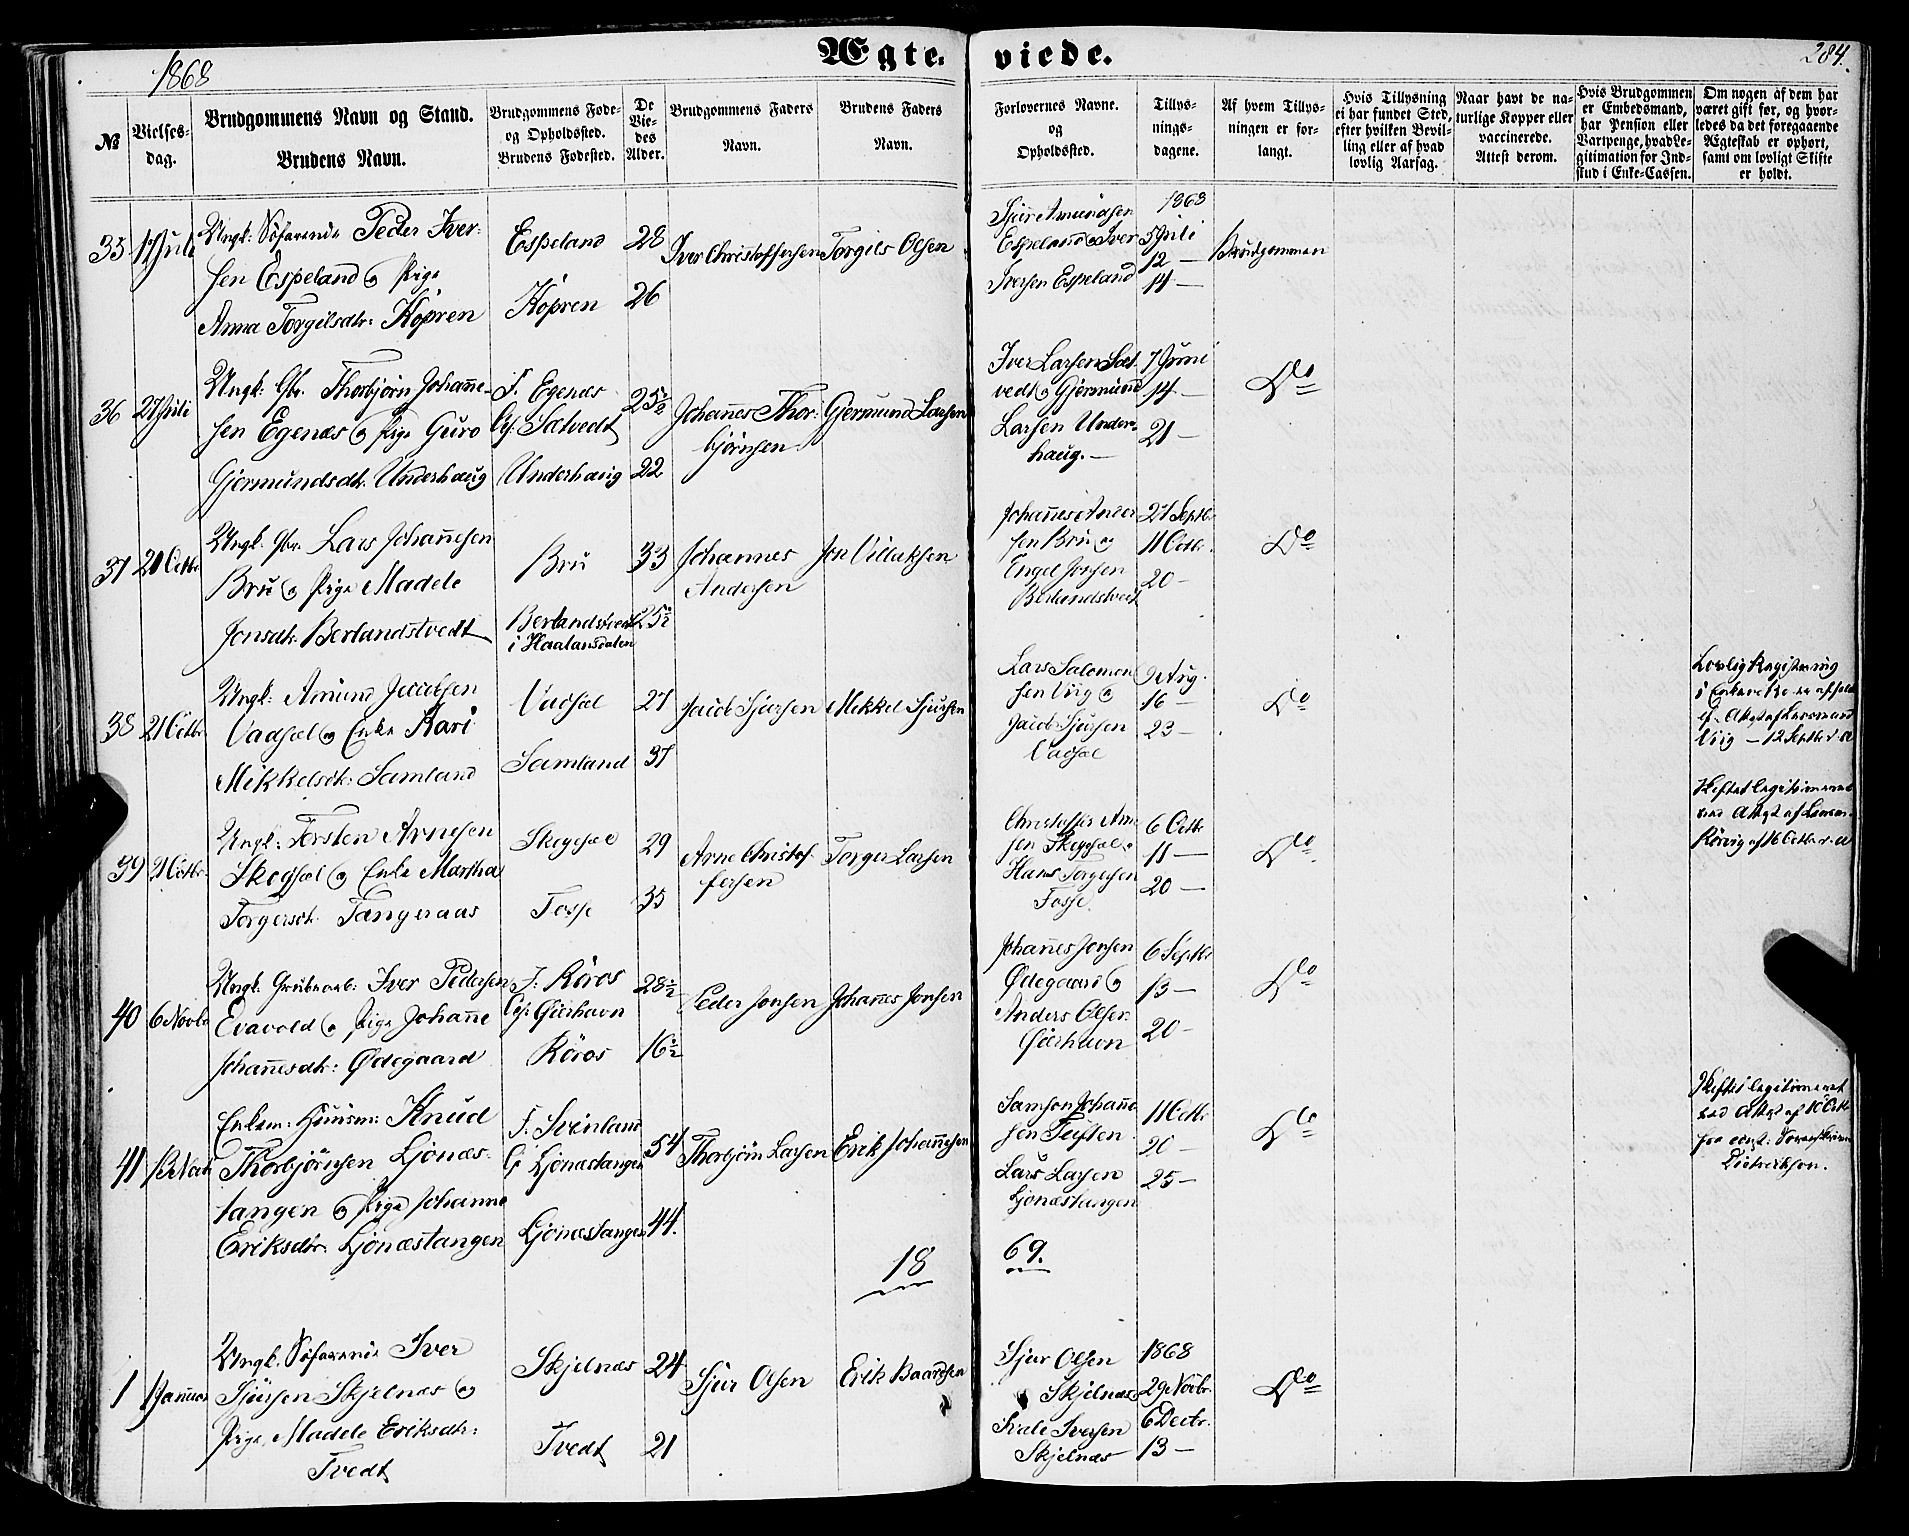 1868
Ægte viede.
284.
№
Vielses-
dag.
Brudgommens Navn og Stand.
Brudens Navn.
Brudgommens Føde-
og Opholdssted.
Brudens Fødested.
De
Vie-
des
Alder.
Brudgommens Faders
Navn.
Brudens Faders
Navn.
Forlovernes Navne.
og
Opholdssted.
Tillys-
nings-
dagene.
Af hvem Tillys-
ningen er for-
langt.
Hvis Tillysning
ei har fundet Sted,
efter hvilken Bevil-
ling eller af hvad
lovlig Aarsag.
Naar havt de na-
turlige Kopper eller
vaccinerede.
Attest derom.
Hvis Brudgommen
er Embedsmand,
har Pension eller
Vartpenge, hvad Le-
gitimation for Ind-
skud i Enke-Cassen.
Om nogen af dem har
været gift før, og hvor-
ledes da det foregaaende
Ægteskab er ophørt,
samt om lovligt Skifte
er holdt.
35
Juli
Ungk: Søfarende Peder Iver-
sen Espeland og Pige
Anna Torgilsdtr: Köpren
Espeland 28
Köpren 26
Iver Christoffersen
Torgils Olsen
Sjur Amundsen
Espeland og Iver
Iversen Espeland
1868
5 Juli
12 —
Brudgommen
36
Juli
Ungk: Gbr. Thorbjørn Johanne-
sen Egenæs og Pige Guro
Gjermundsdtr. Underhaug
F. Egenæs
O: Sætvedt
Underhaug
25½
22
Johannes Thor-
bjørnsen
Gjermund Larsen
Iver Larsen Sæt-
vedt og Gjermund
Larsen Under-
haug. —
7 Juni
14 —
21 —
Do
37
20 Octbr
Ungk. Gbr. Lars Johannesen
Bru og Pige Madele
Jonsdtr. Berlandstvedt
Bru
Berlandstvedt
i Haalandsdalen
33
25½
Johannes
Andersen
Jon Villuksen
Johannes Ander
sen Bru og
Engel Jonsen
Berlandstvedt
27 Septbr.
11 Octbr.
20 —
Do
38
21 Octbr.
Ungk: Amund Jacobsen
Vadsel og Enke Kari
Mikkelsdtr: Samland
Vadsel
Samland
27
37
Jacob Sjursen
Mikkel Sjursen
Lars Salomon
sen Viig og
Jacob Sjursen
Vadsel
9 Aug.
16 —
23 —
Do
Lovlig Registrering
Viig — 12 Septbr
39
21 Octbr.
Ungk: Torsten Arnesen
Skegsel og Enke Martha
Torgersdtr. Tangeraas
Skegsel
Fosse
29
35
Arne Christof-
fersen
Torger Larsen
Christoffer Arne
sen Skegsel
Hans Torgersen
Fosse
6 Octbr
11 —
20 —
Do
Skiftet legitimeret
ved Attest af
40
6 Novbr
Ungk. Grubearb: Iver Pedersen
Evavold og Pige Johanne
Johannesdtr: Ødegaard
F: Röros
Röros
28½
16½
Peder Jonsen
Johannes Jonsen
Johannes Jonsen
Ødegaard og
Anders Olsen
6 Septbr
13 —
20 —
Do
41
Enkem: Huusm: Knud
Thorbjörnsen Ljonæs-
tangen og Pige Johanne
Eriksdtr: Ljonæstangen
F. Svinland
O: Ljonæstangen
Ljonæstangen
54
44.
Thorbjörn Larsen
Erik Johannesen
Samson Johanne
sen Teisten
Lars Larsen
Ljonæstangen
11 Octbr
20 —
25 —
Do
Skiftet legitimeret
ved Attest af
18 69.
1
1 Januar
Ungk. Søfarende Iver
Sjursen Skjelnæs og
Pige Madele Eriksdtr:
Tvedt
Skjelnæs
Tvedt
24
21
Sjur Olsen
Erik Baardsen
Sjur Olsen
Skjelnæs
Iversen
Skjelnæs
1868
29 Novbr.
6 Decbr.
13 —
Do